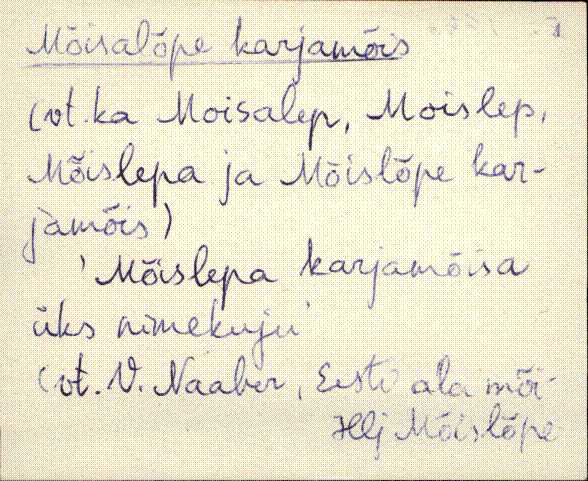 Mõisalõpe karjamõis
(vt. ka Moisalep, Moislep,
Mõislepa ja Mõislõpe kar-
jamõis)
'Mõislepa karjamõisa
üks nimekuju'
(vt. V. Naaber, Eesti ala mõi-
Hlj Mõislõpe